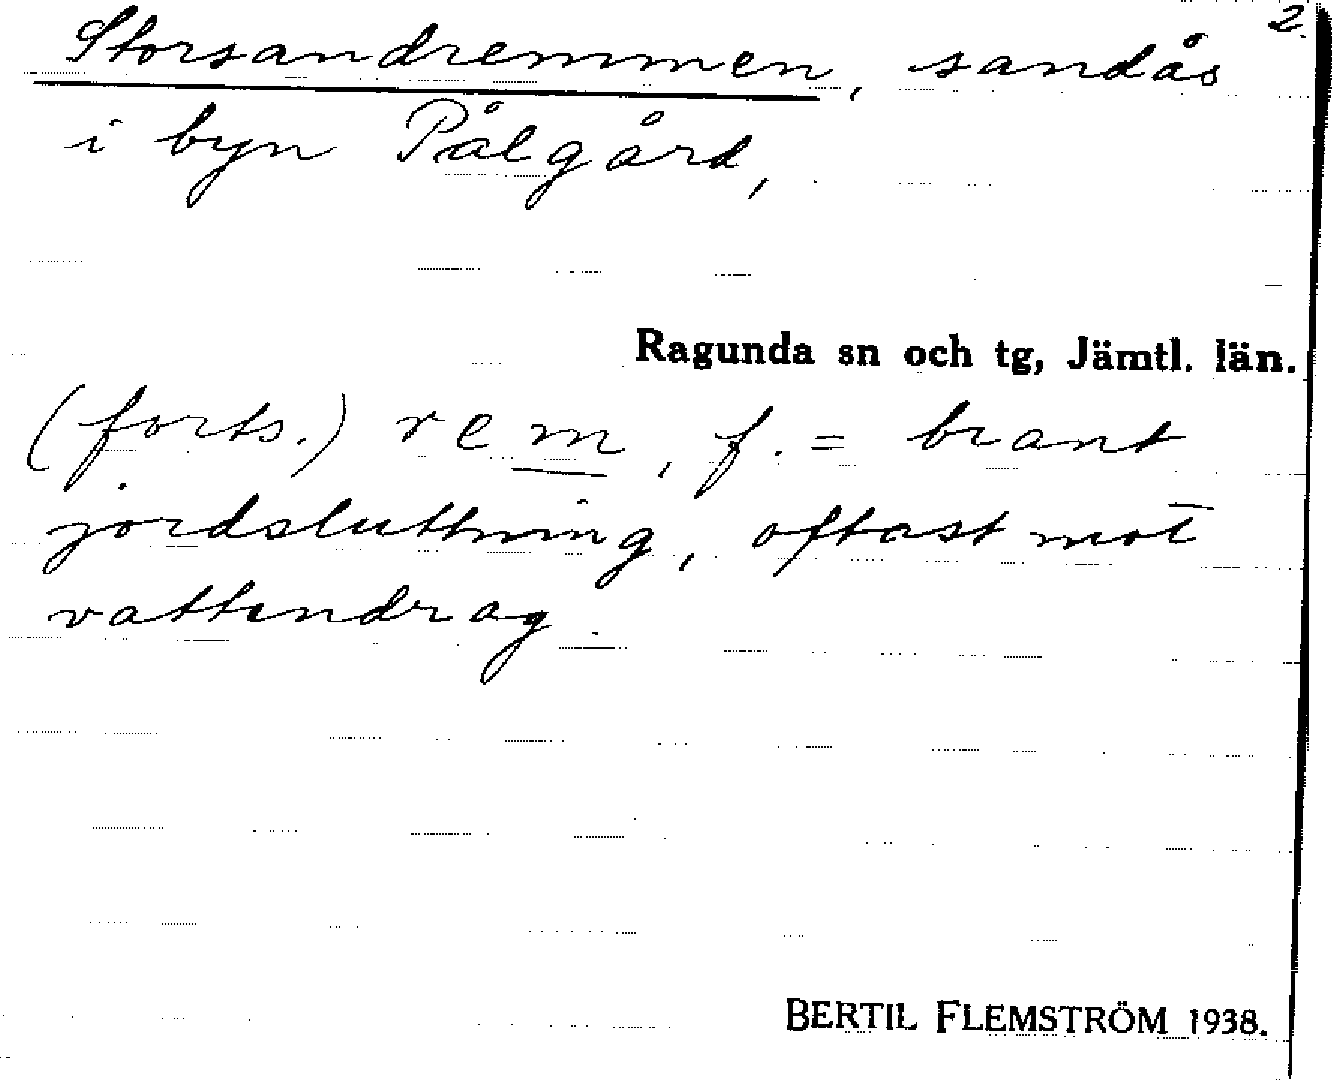 2.
Storsandremmen, sandås
i byn Pålgård,
Ragunda sn och tg, Jämtl. län.
(forts.) rem, f. = brant
jordsluttning, oftast mot
vattendrag.
BERTIL FLEMSTRÖM 1938.